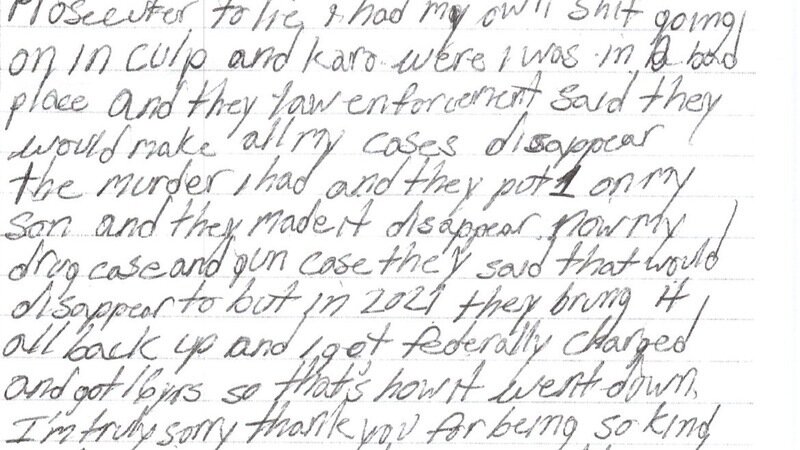 Prosecuter to lie, I had my own shit going
on in Culp and Karo were I was in a bad
place and they law enforcement said they
would make all my cases disappear
the murder I had and they put 1 on my
son and they made it disappear. Now my
drug case and gun case they said that would
disappear to but in 2021 they brung it
all back up and I got federally charged
and got 16yrs so that's how it went down.
I'm truly sorry thank you for being so kind